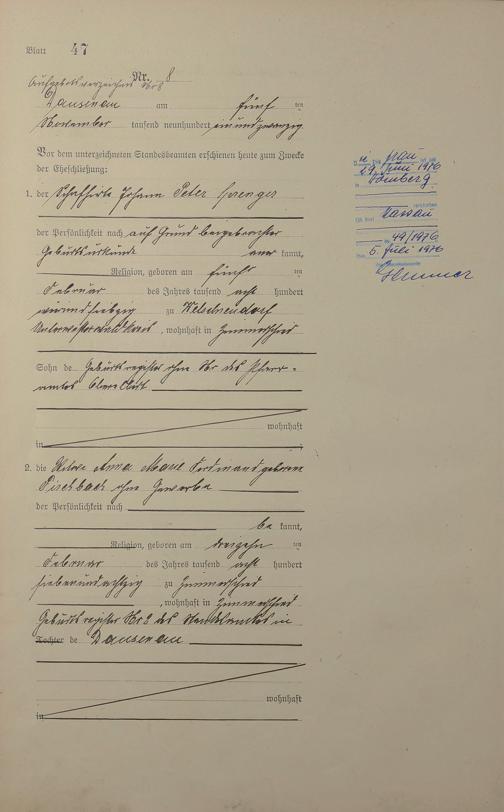 Blatt 47
Aufgebotsverzeichnis Nr. 8
Nr. 8
Dausenau am fünf ten
November tausend neunhundert einundzwanzig
Vor dem unterzeichneten Standesbeamten erschienen heute zum Zwecke
der Eheschließung:
1. der Schafhirte Johann Peter
der Persönlichkeit nach auf Grund beigebrachter
Geburtsurkunde aner kannt,
Religion, geboren am fünf ten
Februar des Jahres tausend acht hundert
zu Welschneudorf
Unterwesterwaldkreis, wohnhaft in Zimmerschied
Sohn de Geburtsregister ohne Nr. des Pfarr-
amtes
wohnhaft
in
2. die Witwe Anna Marie Ferdinand geborene
Fischbach ohne Gewerbe
der Persönlichkeit nach
be kannt,
Religion, geboren am dreizehn ten
Februar des Jahres tausend acht hundert
siebenundachtzig zu Zimmerschied
, wohnhaft in Zimmerschied
Geburtsregister Nr. 2 des Standesamtes in
Tochter de Dausenau
wohnhaft
in
Frau
29. Juni 1976
in Hömberg
verstorben
Nassau
Nr. 49/1976
5. Juli 1976